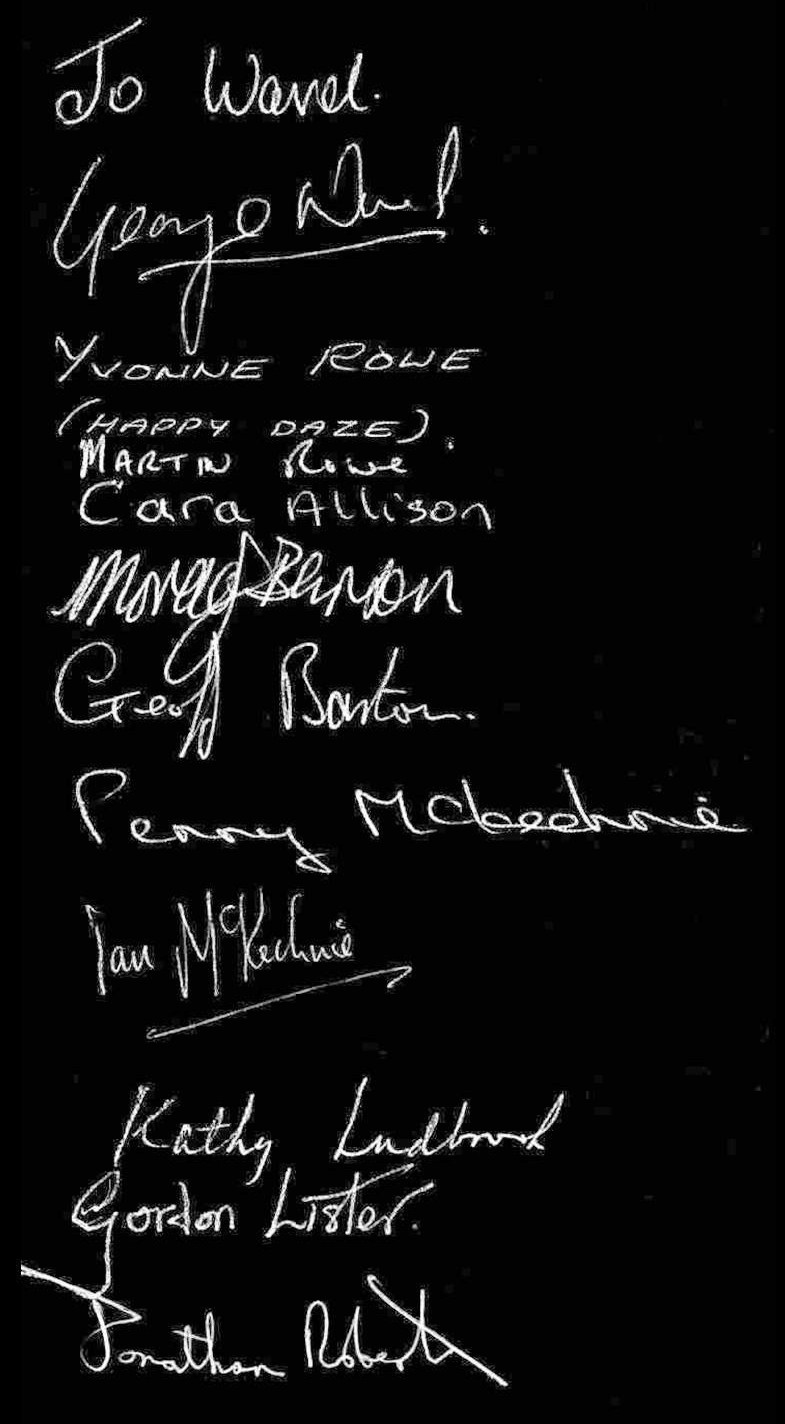 Jo Ward.
George Ward.
YVONNE ROWE
(HAPPY DAZE).
MARTIN Rowe
Cara Allison
Morag
Geoff Barton.
Penny Mckechnie
Ian McKechnie
Kathy
Gordon Lister.
Jonathan Roberts